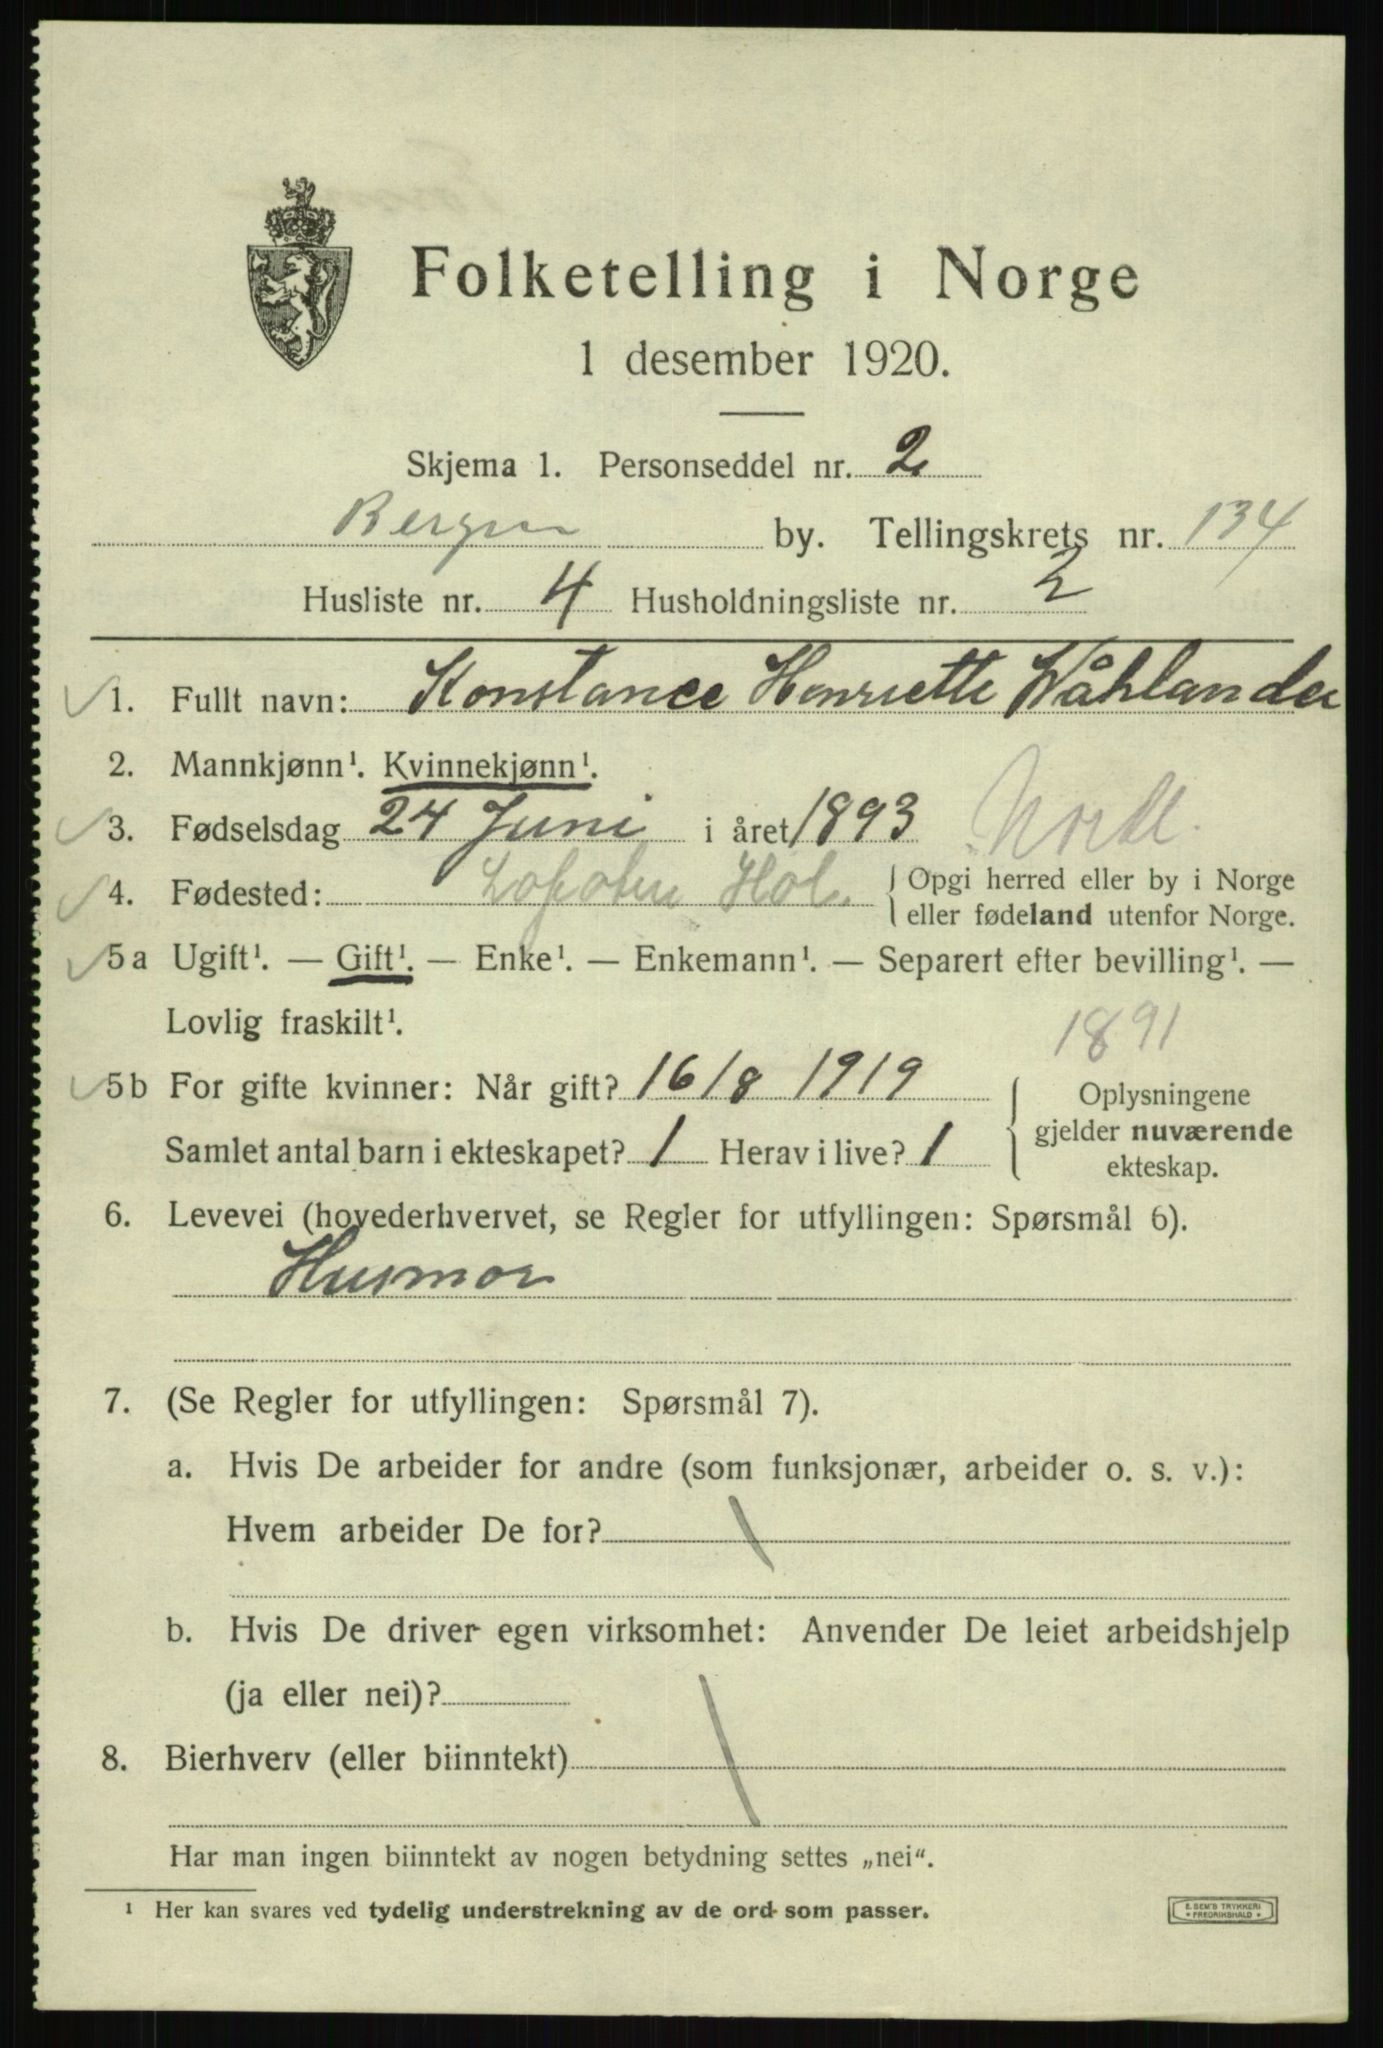 Folketelling i Norge
1 desember 1920.
Skjema 1. Personseddel nr. 2
Bergen by. Tellingskrets nr. 134
Husliste nr. 4 Husholdningsliste nr. 2
1. Fullt navn: Konstance Henriette Wåhlander
2. Mannkjønn¹. Kvinnekjønn¹.
3. Fødselsdag 24 Juni i året 1893
Nordl.
4. Fødested: Lofoten Hol. Opgi herred eller by i Norge
eller fødeland utenfor Norge.
5a Ugift¹. — Gift¹. — Enke¹. — Enkemann¹. — Separert efter bevilling¹. —
Lovlig fraskilt¹.
1891
5b For gifte kvinner: Når gift? 16/8 1919 Oplysningene
gjelder nuværende
Samlet antal barn i ekteskapet? 1 Herav i live? 1
ekteskap.
6. Levevei (hovederhvervet, se Regler for utfyllingen: Spørsmål 6).
Husmor
7. (Se Regler for utfyllingen: Spørsmål 7).
a. Hvis De arbeider for andre (som funksjonær, arbeider o. s. v.):
Hvem arbeider De for?
b. Hvis De driver egen virksomhet: Anvender De leiet arbeidshjelp
(ja eller nei)?
8. Bierhverv (eller biinntekt)
Har man ingen biinntekt av nogen betydning settes „nei“.
¹ Her kan svares ved tydelig understrekning av de ord som passer.
E. SEM'S TRYKKERI
FREDRIKSHALD